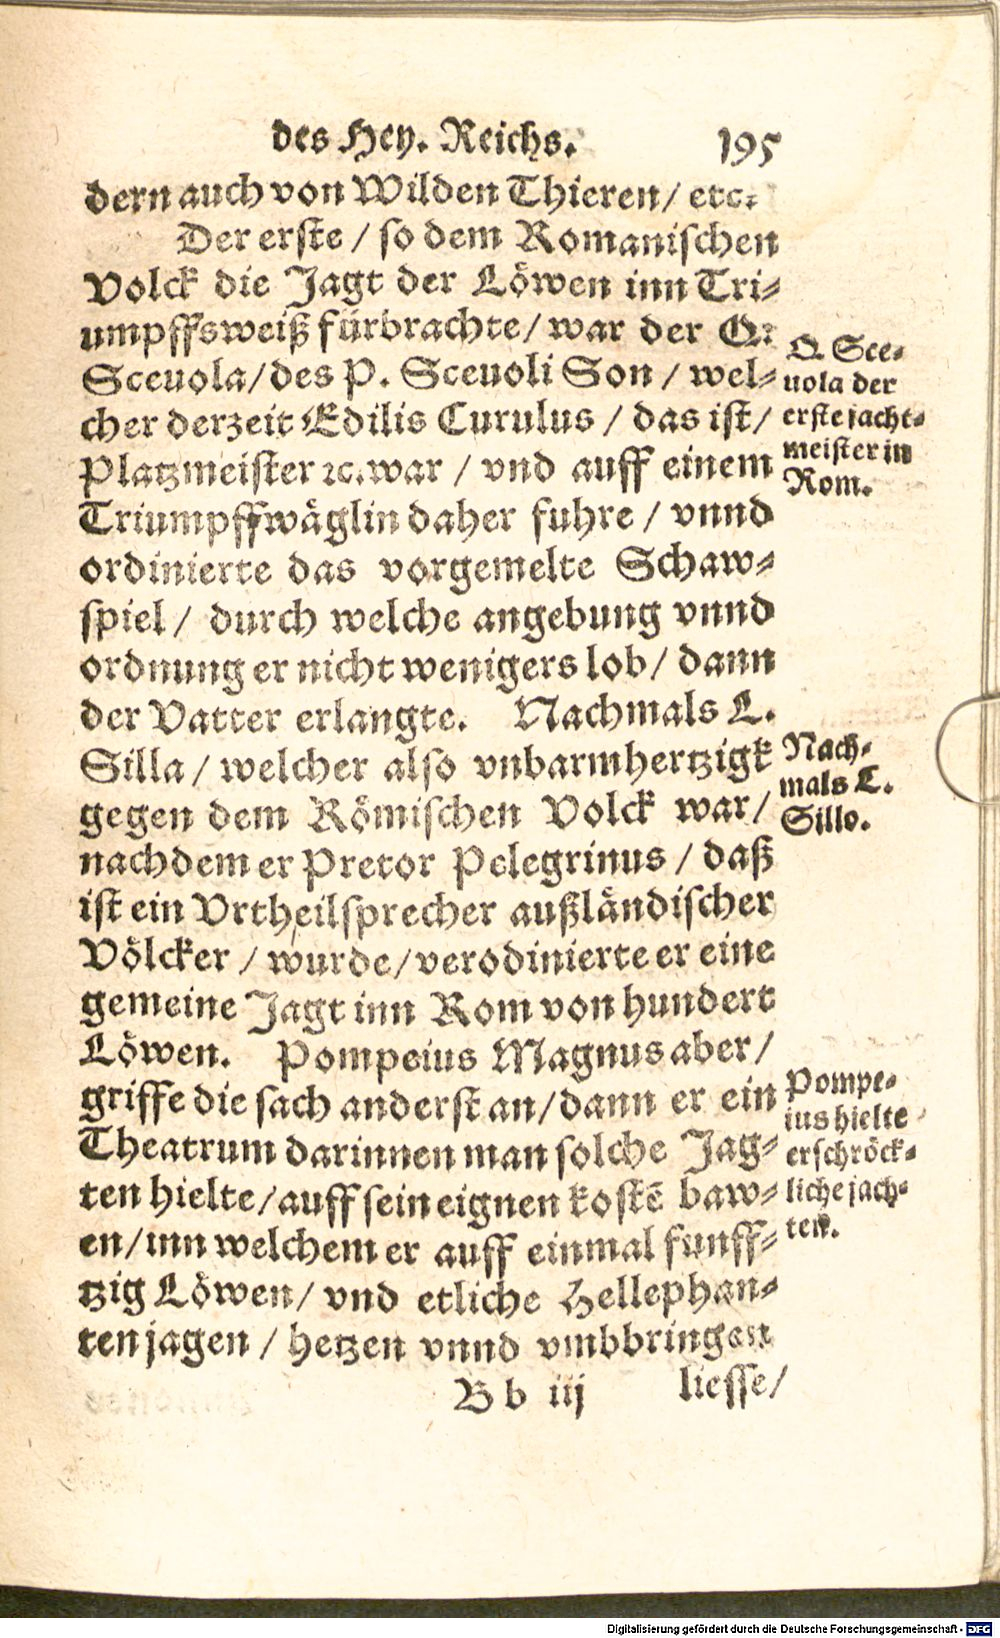 des Hey. Reichs. 195
dern auch von Wilden Thieren/ etc.
Der erste / so dem Romanischen
Volck die Jagt der Löwen inn Tri-
umpffsweiß fürbrachte/ war der Q.
Sceuola/ des P. Sceuoli Son / wel-
cher derzeit Edilis Curulus / das ist/
Platzmeister ꝛc. war / vnd auff einem
Triumpffwäglin daher fuhre / vnnd
ordinierte das vorgemelte Schaw-
spiel / durch welche angebung vnnd
ordnung er nicht wenigers lob/ dann
der Vatter erlangte. Nachmals L.
Silla / welcher also vnbarmhertzigk
gegen dem Römischen Volck war/
nach dem er Pretor Pelegrinus / daß
ist ein Vrtheilsprecher außländischer
Völcker / wurde/ verodinierte er eine
gemeine Jagt inn Rom von hundert
Löwen. Pompeius Magnus aber/
griffe die sach anderst an/ dann er ein
Theatrum darinnen man solche Jag-
ten hielte/ auff sein eignen kostē baw-
en/ inn welchem er auff einmal funff-
tzig Löwen/ vnd etliche Hellephan-
ten jagen / hetzen vnnd vmbbringen
B b iij liesse/
Q. Sce-
uola der
erste jacht-
meister in
Rom.
Nach-
mals L.
Sillo.
Pompe-
ius hielte
erschröck-
liche jach-
ten.
Digitalisierung gefördert durch die Deutsche Forschungsgemeinschaft - DFG